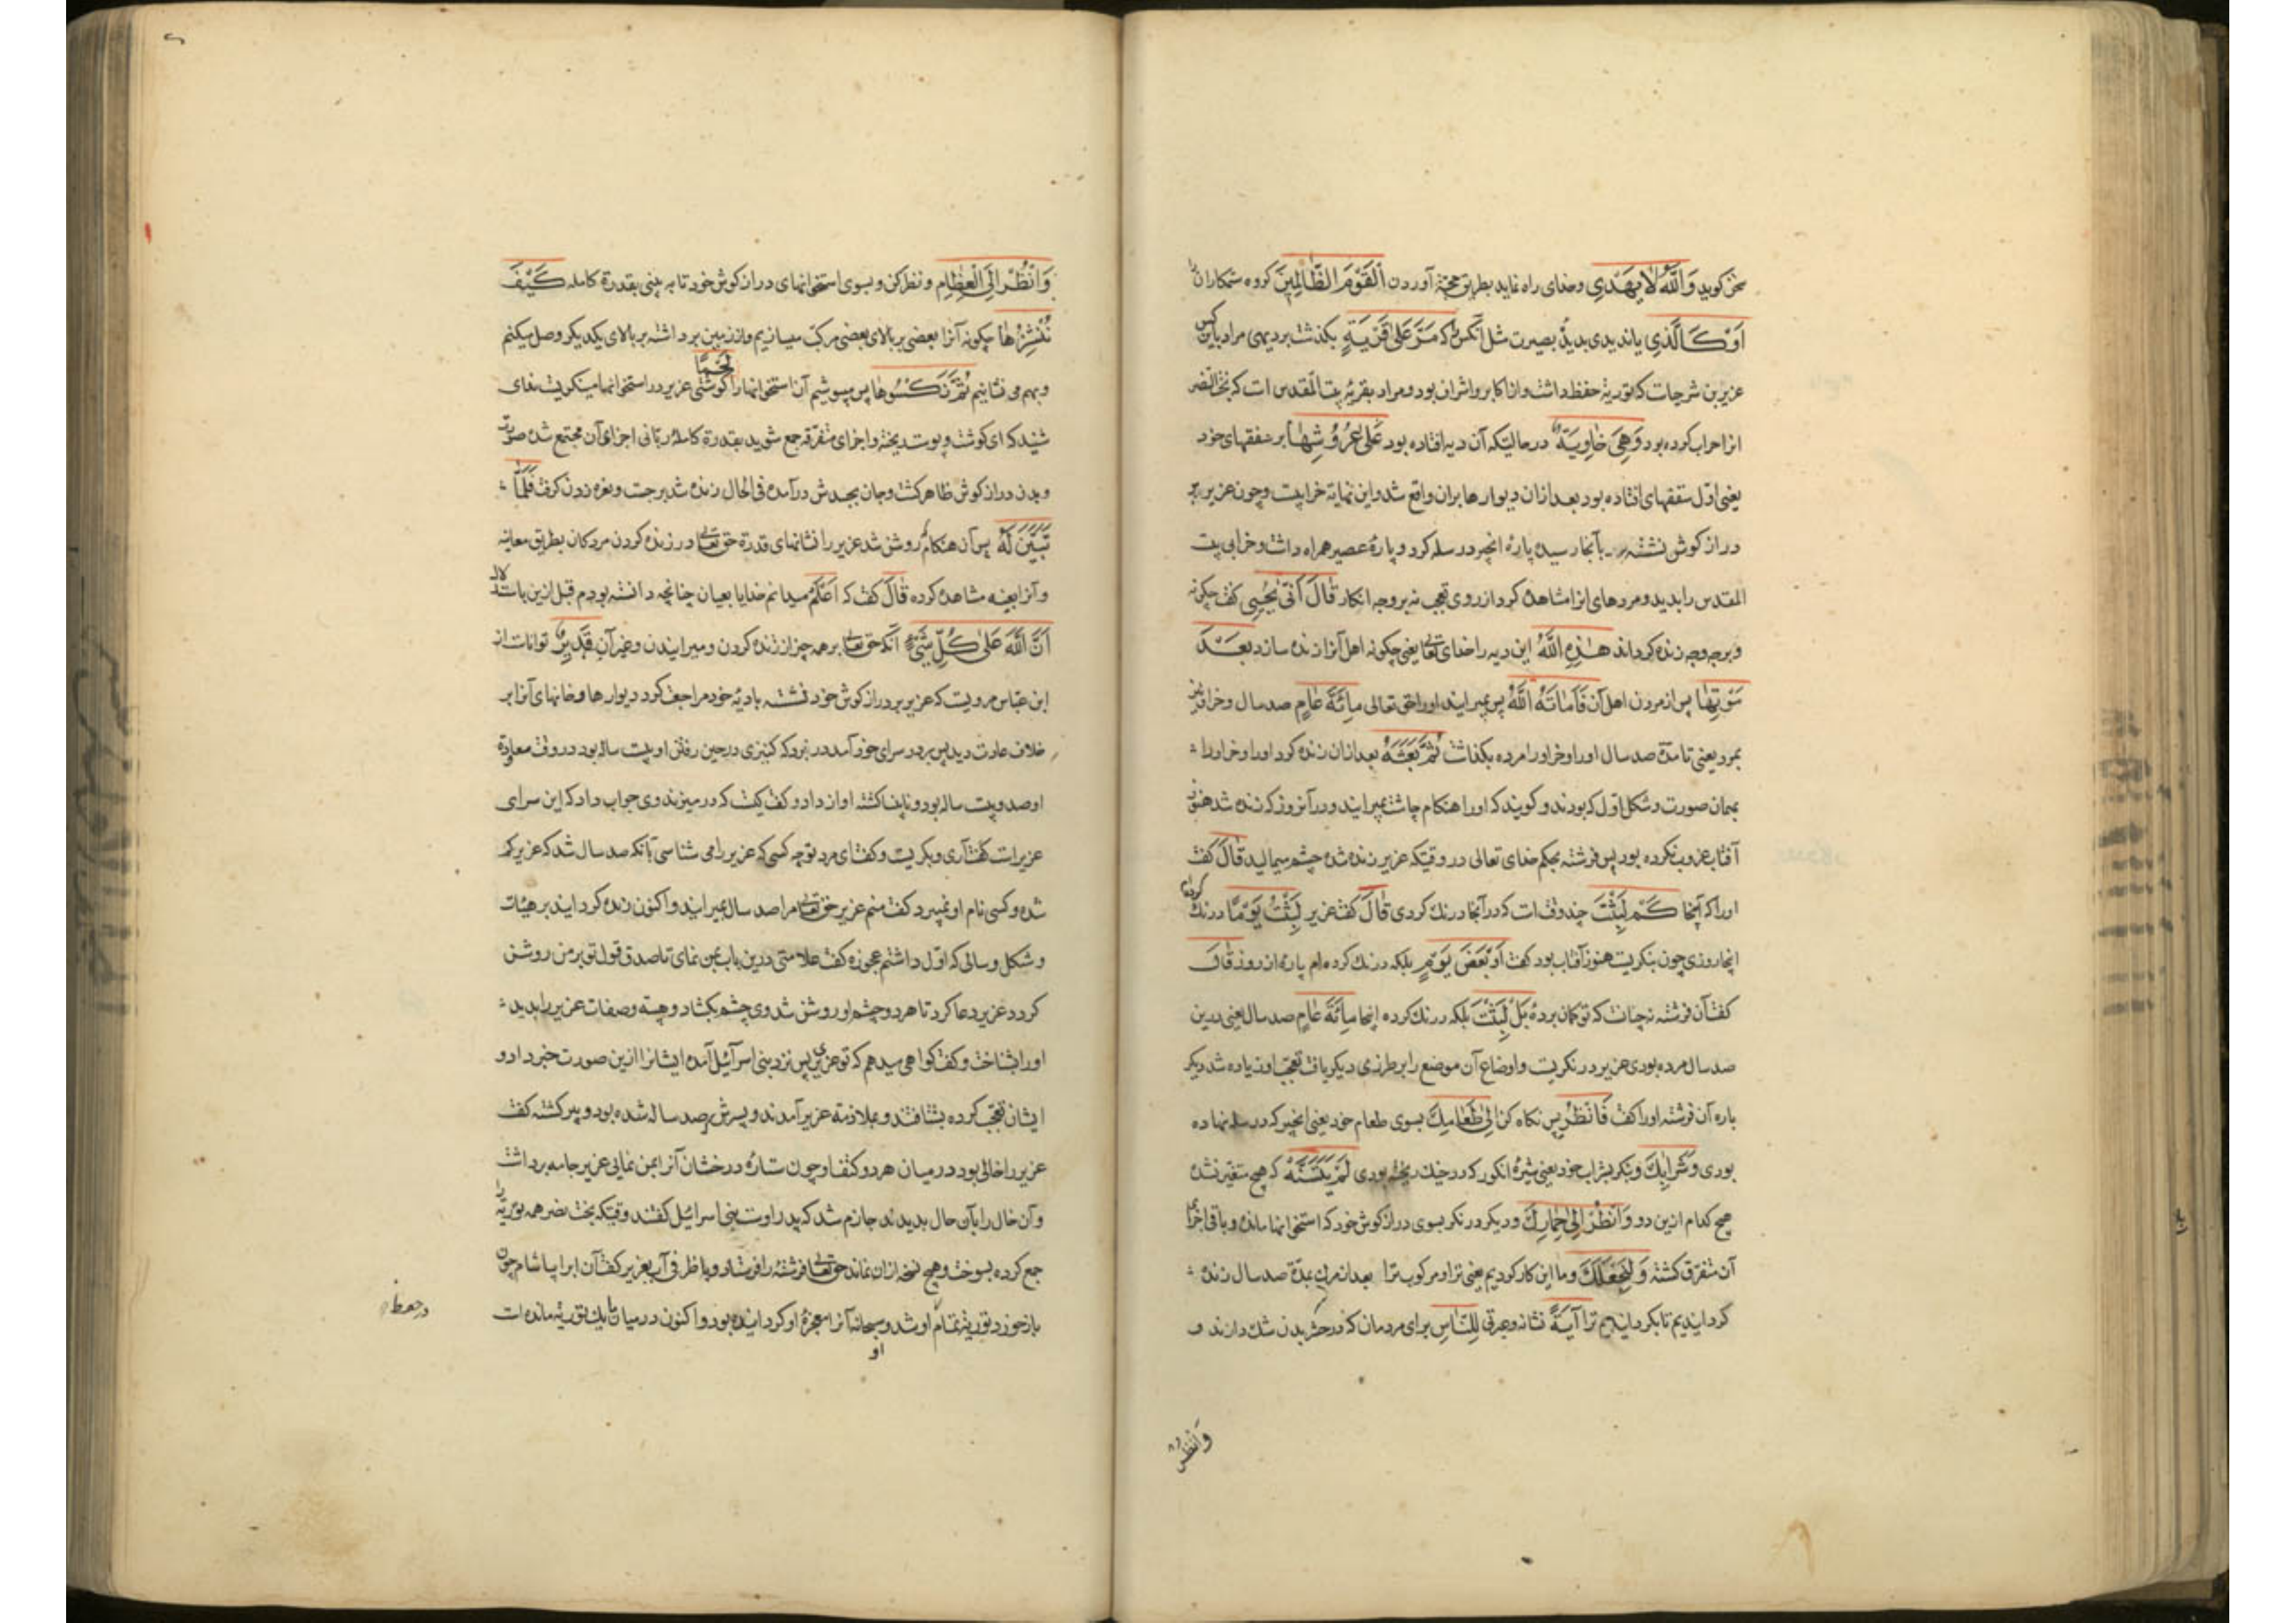 سخن کوید وَاللّٰهُ لَا یَهْدِی وخدای راه ننماید بطریق حجة آوردن الْقَوْمَ الظَّالِمِینَ کروه ستمکارانرا
اَوْ کَالَّذِی یاندیدی بدیدهٔ بصیرت مثل آنکس را که مَرَّ عَلٰی قَرْیَةٍ بکذشت بردیهی مراد باین کس
عزیر بن شرحیات که توریة حفظ داشت واز اکابر واشراف بود ومراد بقریه بیت المقدس است که بخت النصر
انرا خراب کرده بود وَهِیَ خَاوِیَةٌ درحالتیکه آن دیه افتاده بود عَلٰی عُرُوشِهَا بر سقفهای خود
یعنی اول سقفهای افتاده بود بعد ازان دیوارها بران واقع شد واین نهایة خرابیست وچون عزیر بر
دراز کوش نشسته بآنجا رسید پارهٔ انجیر در سله کرد و پارهٔ عصیر همراه داشت وخرابی بیت
المقدس را بدید ومردهای انرا مشاهده کرد از روی تعجب نه بر وجه انکار قَالَ اَنّٰی یُحْیِی کفت چکونه
وبرچه وجه زنده کرداند هٰذِهِ اللّٰهُ این دیه را خدای تعالی یعنی چکونه اهل آنرا زنده سازد بَعْدَ
مَوْتِهَا پس از مردن اهل آن فَاَمَاتَهُ اللّٰهُ پس بمیرانید اورا حق تعالی مِائَةَ عَامٍ صد سال وخر او نیز
بمرد یعنی تا مدة صد سال اورا وخر اورا مرده بکذاشت ثُمَّ بَعَثَهُ بعد ازان زنده کرد اورا وخر اورا
بهمان صورت وشکل اول که بودند وکویند که اورا هنکام چاشت بمیرانید ودر آنروز که زنده شد هنوز
آفتاب غروب نکرده بود پس فرشته بحکم خدای تعالی در وقتیکه عزیر زنده شده چشم میمالید قَالَ کفت
اورا که آنجا کَمْ لَبِثْتَ چند وقت است که در آنجا درنک کردی قَالَ کفت عزیر لَبِثْتُ یَوْمًا درنک کرده‌ام
اینجا روزی چون بنکریست هنوز آفتاب بود کفت اَوْ بَعْضَ یَوْمٍ بلکه درنک کرده ام پارهٔ از روز قَالَ
کفت آن فرشته نه چنانست که تو کمان بردهٔ بَلْ لَبِثْتَ بلکه درنک کرده اینجا مِائَةَ عَامٍ صد سال یعنی درین
صد سال مرده بودی عزیر درنکریست واوضاع آن موضع را برطرزی دیکر یافت تعجب او زیاده شد دیکر
باره آن فرشته اورا کفت فَانْظُرْ پس نکاه کن اِلٰی طَعَامِكَ بسوی طعام خود یعنی انجیر که در سله نهاده
بودی وَشَرَابِكَ وبنکر بشراب خود یعنی شیرهٔ انکور که در خیك ریخته بودی لَمْ یَتَسَنَّهْ که هیچ متغیر نشده
هیچ کدام ازین دو وَانْظُرْ اِلٰی حِمَارِكَ ودیکر درنکر بسوی دراز کوش خود که استخوانها مانده وباقی اجزای
آن متفرق کشته وَلِنَجْعَلَكَ وما این کار کردیم یعنی ترا ومرکوب ترا بعد از مرک بمدة صد سال زنده
کردانیدیم تا بکردانیم ترا آیَةً نشانه وعبرتی لِلنَّاسِ برای مردمان که در حشر بدن شك دارند و
وَانْظُرْ
وَانْظُرْ اِلَی الْعِظَامِ ونظر کن وبسوی استخوانهای دراز کوش خود تا به بینی بقدرة کامله کَیْفَ
نُنْشِزُهَا چکونه آنرا بعضی بر بالای بعضی مرکب میسازیم واز زمین برداشته بر بالای یکدیکر وصل میکنم
وبهم می نشانیم ثُمَّ نَکْسُوهَا پس بپوشیم آن استخوانها را لَحْمًا کوشتی عزیر در استخوانها مینکریست ندای
شنید که ای کوشت وپوست ریخته واجزای متفرقه جمع شوید بقدرة کاملهٔ ربانی اجزای آن مجتمع شده صورت
وبدن دراز کوش ظاهر کشت وجان بجسدش درآمده فی الحال زنده شد برجست ونعره زدن کرفت فَلَمَّا
تَبَیَّنَ لَهُ پس آن هنکام که روشن شد عزیر را نشانهای قدرة حق تعالی در زنده کردن مردکان بطریق معاینه
وآنرا بعینه مشاهده کرده قَالَ کفت که اَعْلَمُ میدانم خدایا بعیان چنانچه دانسته بودم قبل ازین باستدلال
اَنَّ اللّٰهَ عَلٰی کُلِّ شَیْءٍ آنکه حق تعالی برهمه چیز از زنده کردن ومیرانیدن وغیر آن قَدِیرٌ تواناست از
ابن عباس مرویست که عزیر بر دراز کوش خود نشسته بادیهٔ خود مراجعت کرد دیوارها وخانهای آنرا بر
خلاف عادت دید پس بردر سرای خود آمد در بزد که کنیزکی درحین رفتن او بیست ساله بود در وقت معاودة
او صد وبیست ساله بود ونابینا کشته اواز داد وکفت کیست که در میزند وی جواب داد که این سرای
عزیرست کفت آری وبکریست وکفت ای مرد توچه کسی که عزیر را می شناسی بآنکه صد سال شد که عزیر کم
شده وکسی نام او نمیبرد کفت منم عزیر حق تعالی مرا صد سال بمیرانید واکنون زنده کردانید بر هیئات
وشکل وسالی که اول داشتم عجوزه کفت علامتی درین باب بمن نمای تا صدق قول تو بر من روشن
کردد عزیر دعا کرد تا هر دو چشم او روشن شد وی چشم بکشاد وهیئه وصفات عزیر را بدید
اورا بشناخت وکفت کواهی میدهم که تو عزیری پس نزد بنی اسرآئیل آمده ایشانرا ازین صورت خبر داد و
ایشان تعجب کرده بشتافتند وبملازمة عزیر آمدند وپسرش صد ساله شده بود وپیر کشته کفت
عزیر را خالی بود در میان هر دو کتف او چون ستارهٔ درخشان آنرا بمن نمایی عزیر جامه برداشت
وآن خال را بآن حال بدیدند جازم شد که پدر اوست بنی اسرائیل کفتند وقتیکه بخت نصر همه توریة را
جمع کرده بسوخت وهیچ نسخه ازان نماند حق تعالی فرشته را فرستاد وبا ظرفی آب بعزیر کفت آن ابرا بیاشام چون
باز خورد توریة تمام او شد وسبحانه آنرا معجزهٔ او کردانیده بود واکنون در میان ما یك توریة مانده است
او
درحفظ